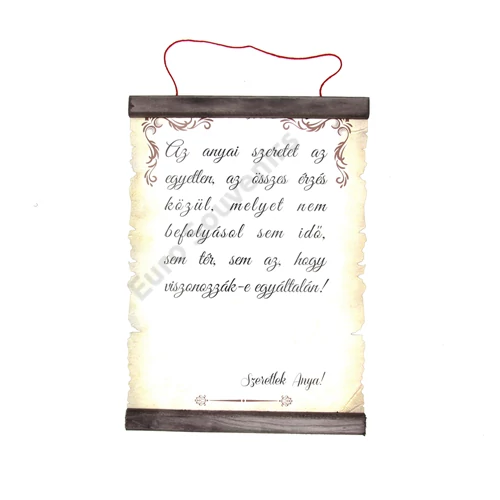 Az anyai szeretet az
egyetlen, az összes érzés
közül, melyet nem
befolyásol sem idő,
sem tér, sem az, hogy
viszonozzák-e egyáltalán!
Szeretlek Anya!
Euro Souvenirs